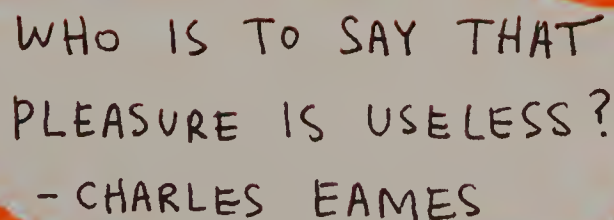 WHO IS TO SAY THAT
PLEASURE IS USELESS?
- CHARLES EAMES